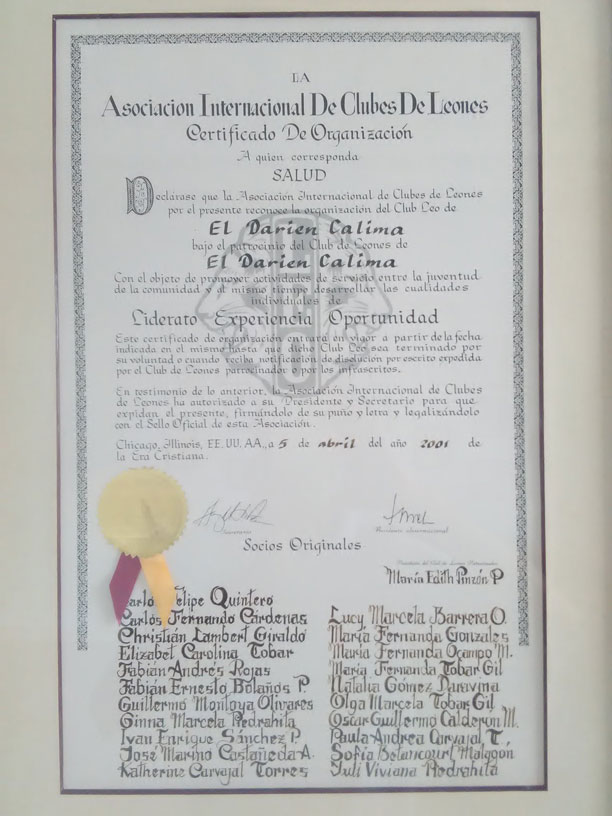 LA
Asociacion Internacional De Clubes De Leones
Certificado De Organización
A quien corresponda
SALUD
Declárase que la Asociación Internacional de Clubes de Leones
por el presente reconoce la organización del Club Leo de
El Darien Calima
bajo el patrocinio del Club de Leones de
El Darien Calima
Con el objeto de promover actividades de servicio entre la juventud
de la comunidad y al mismo tiempo desarrollar las cualidades
individuales de
Liderato Experiencia Oportunidad
Este certificado de organización entrará en vigor a partir de la fecha
indicada en el mismo hasta que dicho Club Leo sea terminado por
su voluntad o cuando reciba notificación de disolución por escrito expedida
por el Club de Leones patrocinador o por los infrascritos.
En testimonio de lo anterior, la Asociación Internacional de Clubes
de Leones ha autorizado a su Presidente y Secretario para que
expidan el presente, firmándolo de su puño y letra y legalizándolo
con el Sello Oficial de esta Asociación.
Chicago, Illinois, EE. UU. AA., a 5 de abril del año 2001 de
la Era Cristiana.
Secretario
Presidente Internacional
Socios Originales
Presidente del Club de Leones Patrocinador
María Edith Pinzón P
Carlos Felipe Quintero
Carlos Fernando Cárdenas
Christián Lambert Giraldo
Elizabet Carolina Tobar
Fabián Andrés Rojas
Fabján Ernesto Bolaños P.
Guillermo Montoya Olivares
Ginna Marcela Piedrahita
Ivan Enrique Sánchez P.
José Marino Castañeda A.
Katherine Carvajal Torres
Lucy Marcela Barrera O.
María Fernanda Gonzales
María Fernanda Ocampo M.
María Fernanda Tobar Gil
Natalia Gómez
Olga Marcela Tobar Gil
Oscar Guillermo Calderón M.
Paula Andrea Carvajal T.
Sofía Betancourt Malagon
Juli Viviana Piedrahita